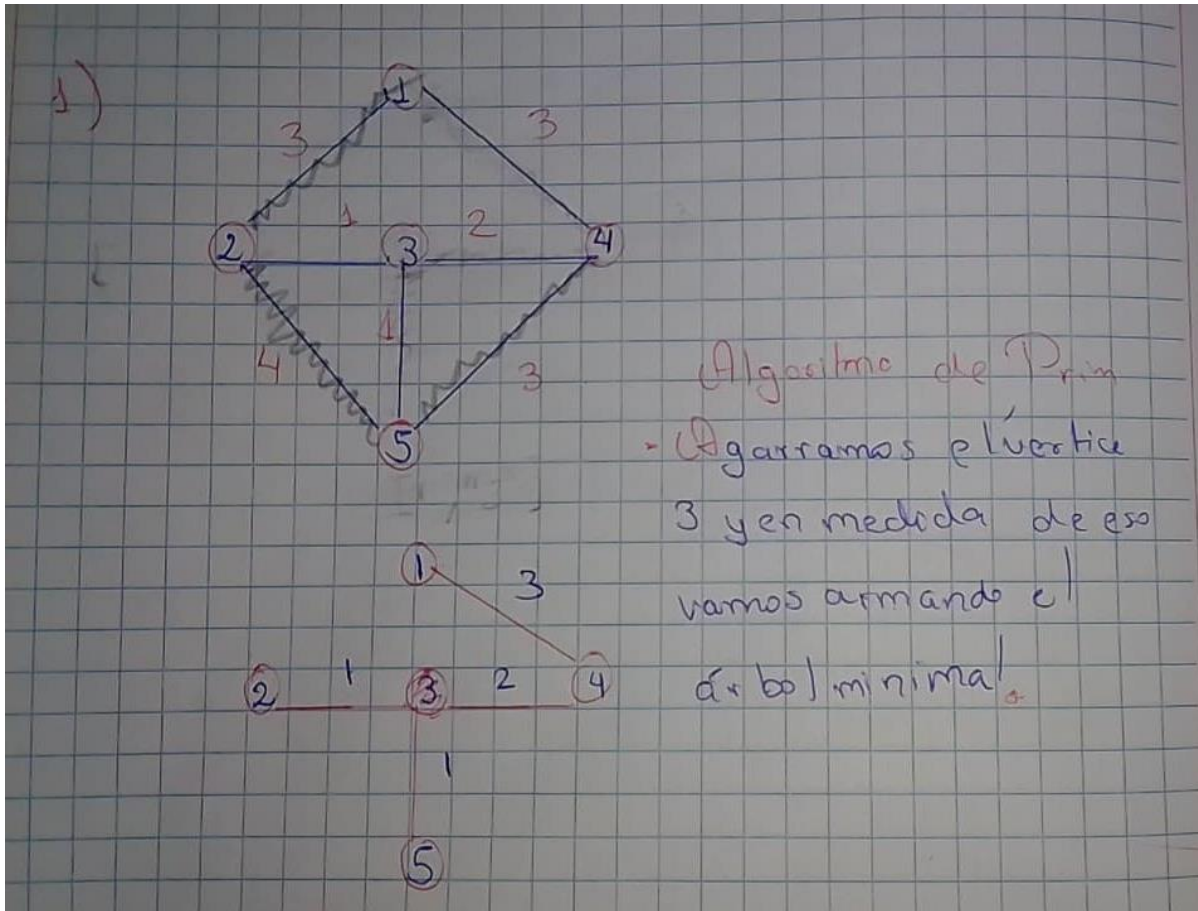 1)
1
3 3
1 2
2 3 4
1
4 3
5
Algoritmo de Prim
- Agarramos el vértice
3 y en medida de eso
vamos armando el
árbol minimal.
1
3
1 2
2 3 4
1
5